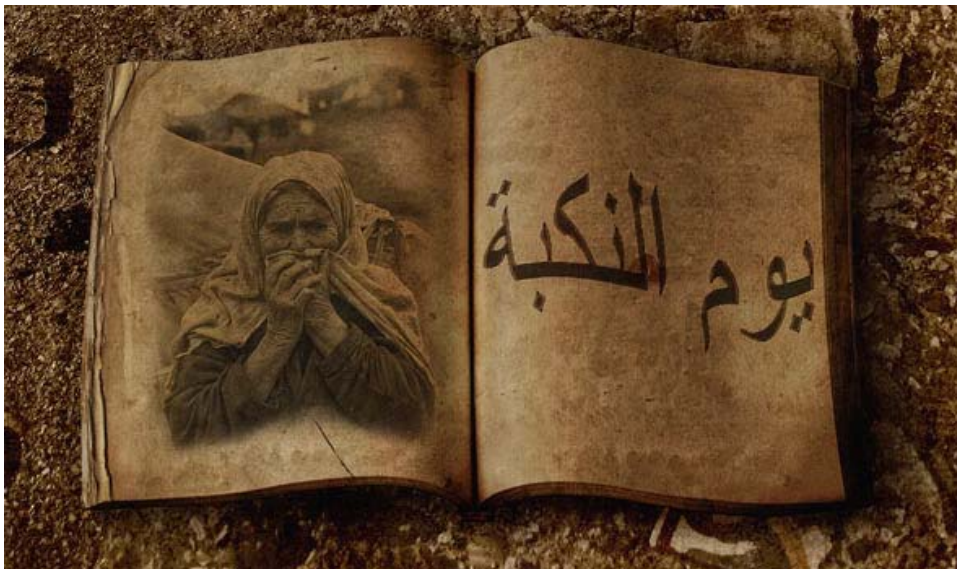 يوم النكبة